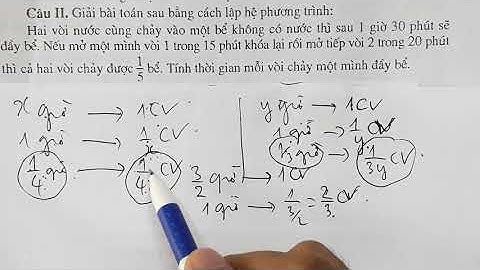 Câu II. Giải bài toán sau bằng cách lập hệ phương trình:
Hai vòi nước cùng chảy vào một bể không có nước thì sau 1 giờ 30 phút sẽ
đầy bể. Nếu mở một mình vòi 1 trong 15 phút khóa lại rồi mở tiếp vòi 2 trong 20 phút
thì cả hai vòi chảy được 1/5 bể. Tính thời gian mỗi vòi chảy một mình đầy bể.
x giờ → 1CV
1 giờ → 1/x CV
1/4 giờ → CV
y giờ → 1CV
1 giờ → 1/y CV
1/3 giờ → 1/3y CV
3/2 giờ → 1CV
1 giờ → 1/3/2 = 2/3 CV